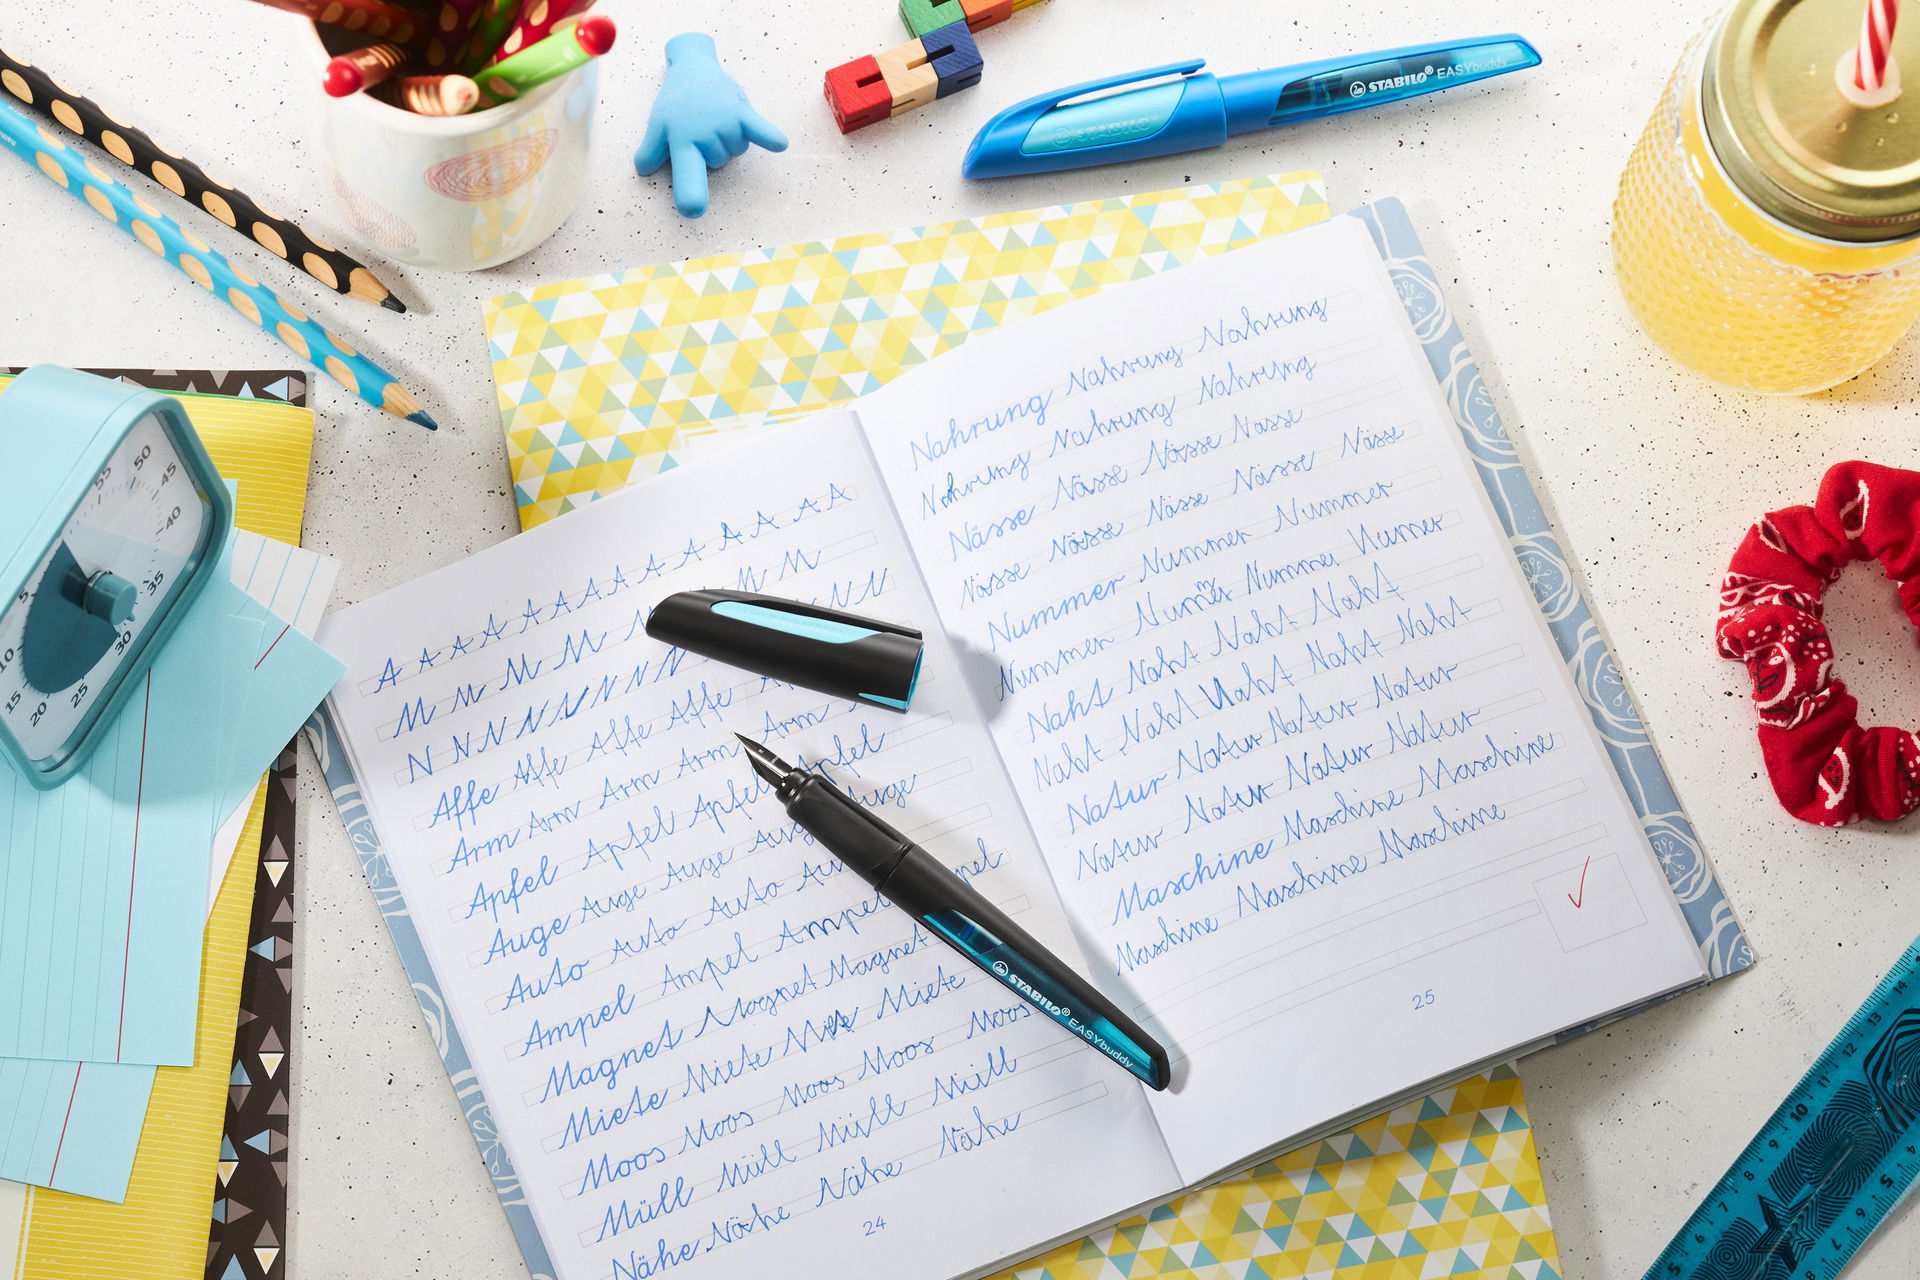 STABILO® EASYbuddy
STABILO
A A A A A A A A A A A A A A
M M M M M M M
N N N N N N N N N N N
Affe Affe Affe Affe
Arm Arm Arm Arm Arm
Apfel Apfel Apfel Apfel
Auge Auge Auge Auge
Auto Auto Auto
Ampel Ampel Ampel
Magnet Magnet Magnet
Miete Miete Miete Miete
Moos Moos Moos Moos Moos
Müll Müll Müll Müll
Nähe Nähe Nähe Nähe
24
Nahrung Nahrung Nahrung
Nahrung Nahrung Nahrung
Nässe Nässe Nässe Nässe
Nässe Nässe Nässe Nässe Nässe
Nummer Nummer Nummer
Nummer Nummer Nummer Numer
Naht Naht Naht Naht
Naht Naht Naht Naht Naht
Natur Natur Natur Natur
Natur Natur Natur Natur
Maschine Maschine Maschine
Maschine Maschine Maschine
25
STABILO® EASYbuddy
55 50 45 40 35 30 25 20 15 10 5
14 13 12 11 10 9 8 7 6 5